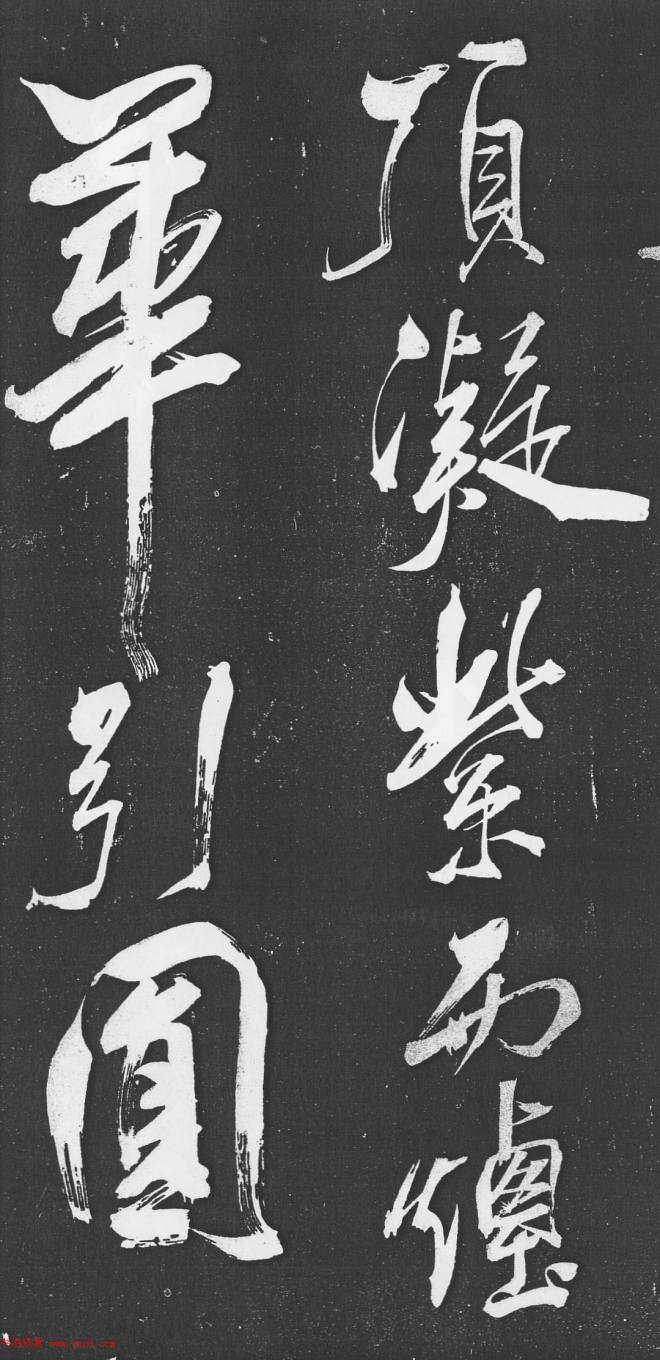 頂凝紫而爐
華引圓